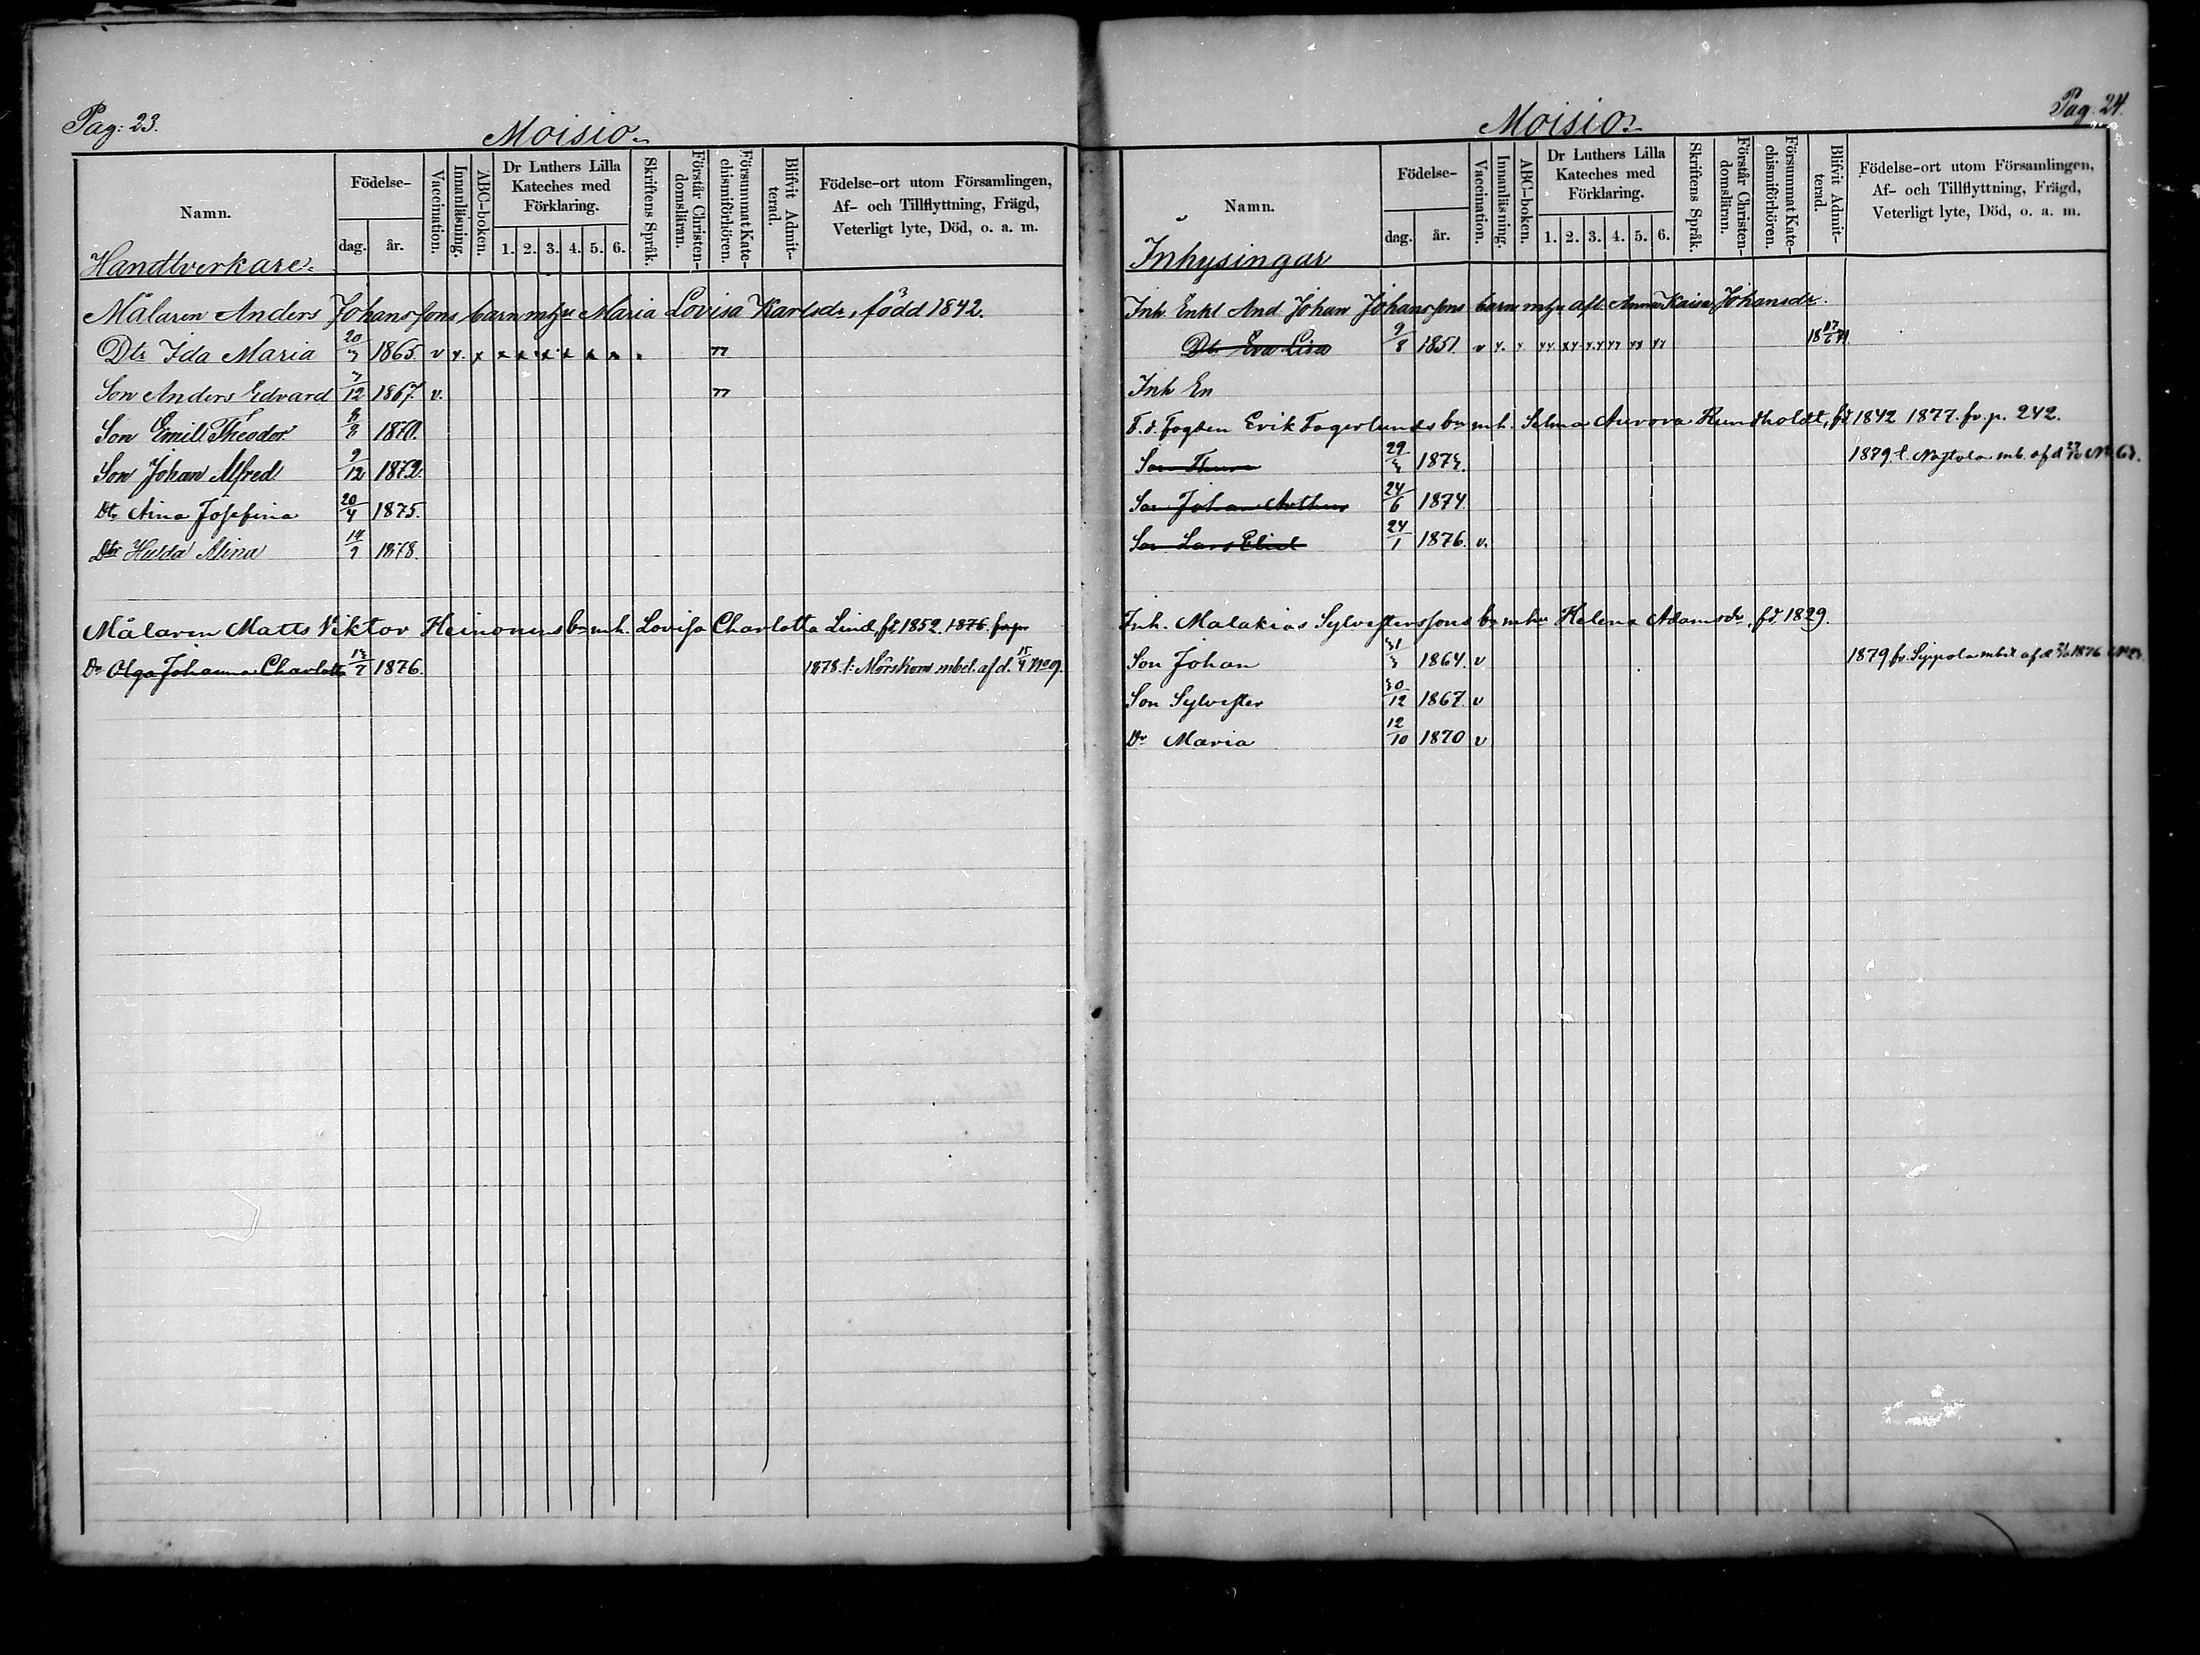 Pag: 23.
Moisio
Namn.
Födelse-
dag.
år.
Vaccination.
Innanläsning.
ABC-boken.
Dr Luthers Lilla Kateches med Förklaring.
1. 2. 3. 4. 5. 6.
Skriftens Språk.
Förstår Christendomsläran.
Försummat Katechismiförhören.
Blifvit Admitterad.
Födelse-ort utom Församlingen,
Af- och Tillflyttning, Frägd,
Veterligt lyte, Död, o. a. m.
Handtverkare.
Målaren Anders Johanssons barn m hu Maria Lovisa Karlsdr, född 1842.
Dtr Ida Maria 20/3 1865 v x. x x x x x x x
Son Anders Edvard 3/12 1867 v.
Son Emil Theodor 8/8 1870.
Son Johan Alfred 9/12 1872.
Dtr Aina Josefina 20/4 1875.
Dtr Hulda Alina 14/9 1878.
Målaren Matts Viktor Heinonens bn m h. Lovisa Charlotta Lind, fd 1852. 1876
Dr Olga Johanna Charlotta 1876. 1878. t. Mörskom mbet. af d. 15/4 No 9.
Pag. 24.
Moisio
Namn.
Födelse-
dag.
år.
Vaccination.
Innanläsning.
ABC-boken.
Dr Luthers Lilla Kateches med Förklaring.
1. 2. 3. 4. 5. 6.
Skriftens Språk.
Förstår Christendomsläran.
Försummat Katechismiförhören.
Blifvit Admitterad.
Födelse-ort utom Församlingen,
Af- och Tillflyttning, Frägd,
Veterligt lyte, Död, o. a. m.
Inhysingar
Inh Enkl And Johan Johanssons barn m hu afl. Anna Kaisa Johansdr.
Dtr Eva Lisa 9/8 1851. v
Inh En
F. d. fogden Erik Fagerlunds bn m h. Selma Aurora Hundholdt, fd 1842 1877. fr. p. 242.
Son Thure 29/3 1873. 1879. t. mb. af d
Son Johan Arthur 24/6 1874.
Son Lars Eliel 24/1 1876. v.
Inh. Malakias Sylvesterssons bn m hu Helena Adamsdr, fd. 1829.
Son Johan 31/3 1864. v 1879 fr. Sippola mbet af d 1876
Son Sylvester 30/12 1867 v
Dr Maria 12/10 1870 v